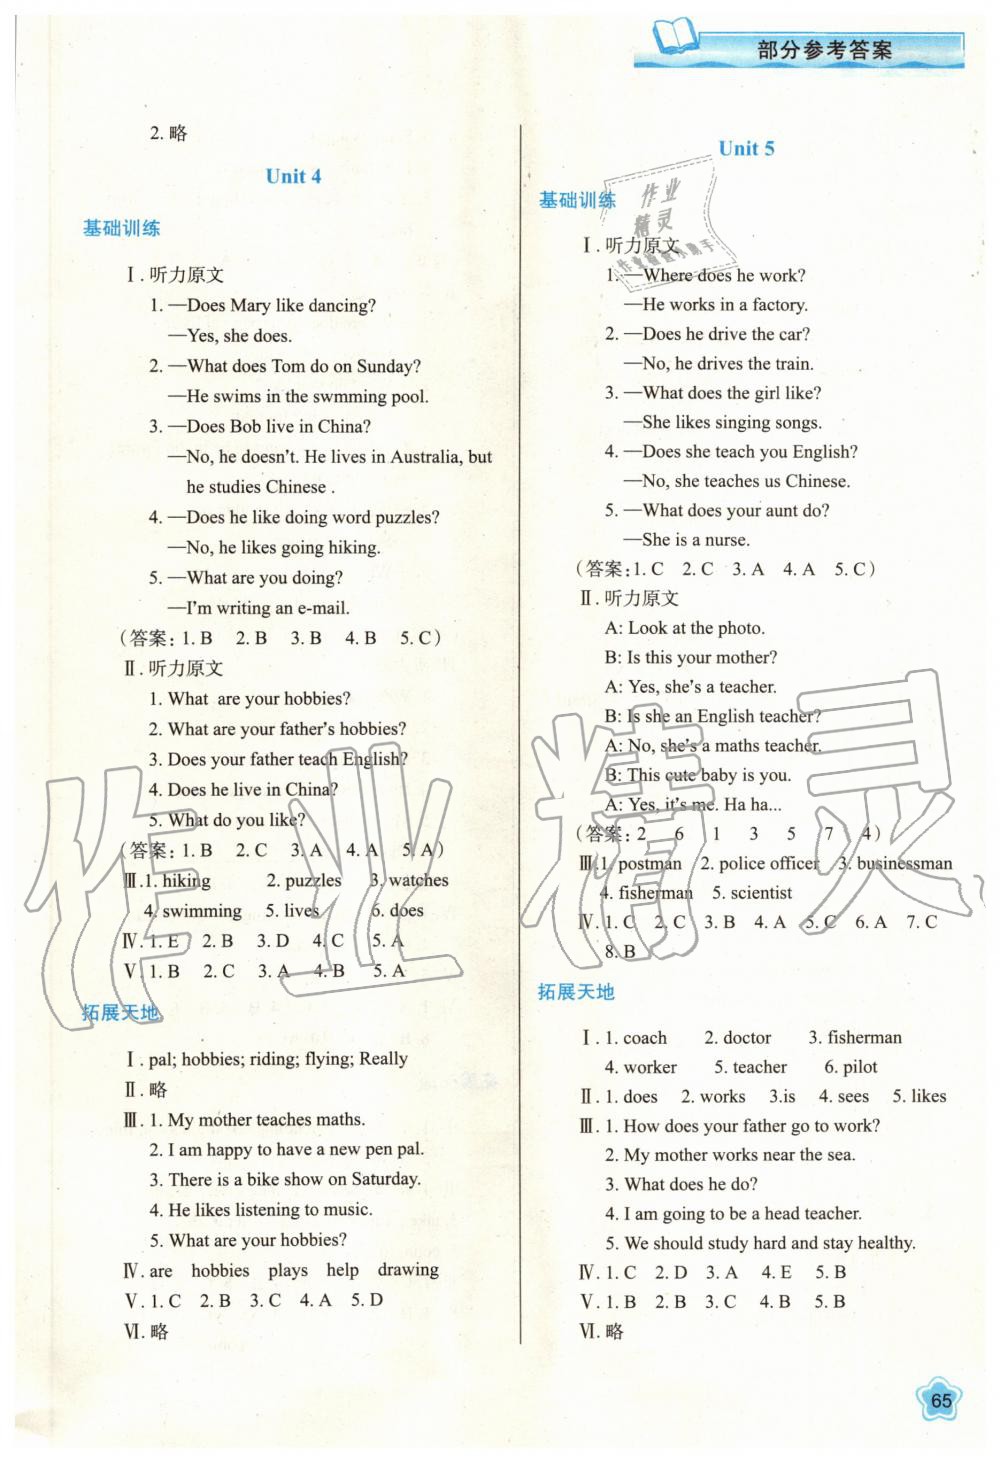 部分参考答案
2. 略
Unit 4
基础训练
Ⅰ. 听力原文
1. —Does Mary like dancing?
—Yes, she does.
2. —What does Tom do on Sunday?
—He swims in the swmming pool.
3. —Does Bob live in China?
—No, he doesn't. He lives in Australia, but
he studies Chinese .
4. —Does he like doing word puzzles?
—No, he likes going hiking.
5. —What are you doing?
—I'm writing an e-mail.
(答案: 1. B 2. B 3. B 4. B 5. C)
Ⅱ. 听力原文
1. What are your hobbies?
2. What are your father's hobbies?
3. Does your father teach English?
4. Does he live in China?
5. What do you like?
(答案: 1. B 2. C 3. A 4. A 5. A)
Ⅲ. 1. hiking 2. puzzles 3. watches
4. swimming 5. lives 6. does
Ⅳ. 1. E 2. B 3. D 4. C 5. A
Ⅴ. 1. B 2. C 3. A 4. B 5. A
拓展天地
Ⅰ. pal; hobbies; riding; flying; Really
Ⅱ. 略
Ⅲ. 1. My mother teaches maths.
2. I am happy to have a new pen pal.
3. There is a bike show on Saturday.
4. He likes listening to music.
5. What are your hobbies?
Ⅳ. are hobbies plays help drawing
Ⅴ. 1. C 2. B 3. C 4. A 5. D
Ⅵ. 略
Unit 5
基础训练
Ⅰ. 听力原文
1. —Where does he work?
—He works in a factory.
2. —Does he drive the car?
—No, he drives the train.
3. —What does the girl like?
—She likes singing songs.
4. —Does she teach you English?
—No, she teaches us Chinese.
5. —What does your aunt do?
—She is a nurse.
(答案: 1. C 2. C 3. A 4. A 5. C)
Ⅱ. 听力原文
A: Look at the photo.
B: Is this your mother?
A: Yes, she's a teacher.
B: Is she an English teacher?
A: No, she's a maths teacher.
B: This cute baby is you.
A: Yes, it's me. Ha ha...
(答案: 2 6 1 3 5 7 4)
Ⅲ. 1. postman 2. police officer 3. businessman
4. fisherman 5. scientist
Ⅳ. 1. C 2. C 3. B 4. A 5. C 6. A 7. C
8. B
拓展天地
Ⅰ. 1. coach 2. doctor 3. fisherman
4. worker 5. teacher 6. pilot
Ⅱ. 1. does 2. works 3.is 4. sees 5. likes
Ⅲ. 1. How does your father go to work?
2. My mother works near the sea.
3. What does he do?
4. I am going to be a head teacher.
5. We should study hard and stay healthy.
Ⅳ. 1. C 2. D 3. A 4. E 5. B
Ⅴ. 1. B 2. B 3. C 4. B 5. B
Ⅵ. 略
65
作业精灵
作业
精灵